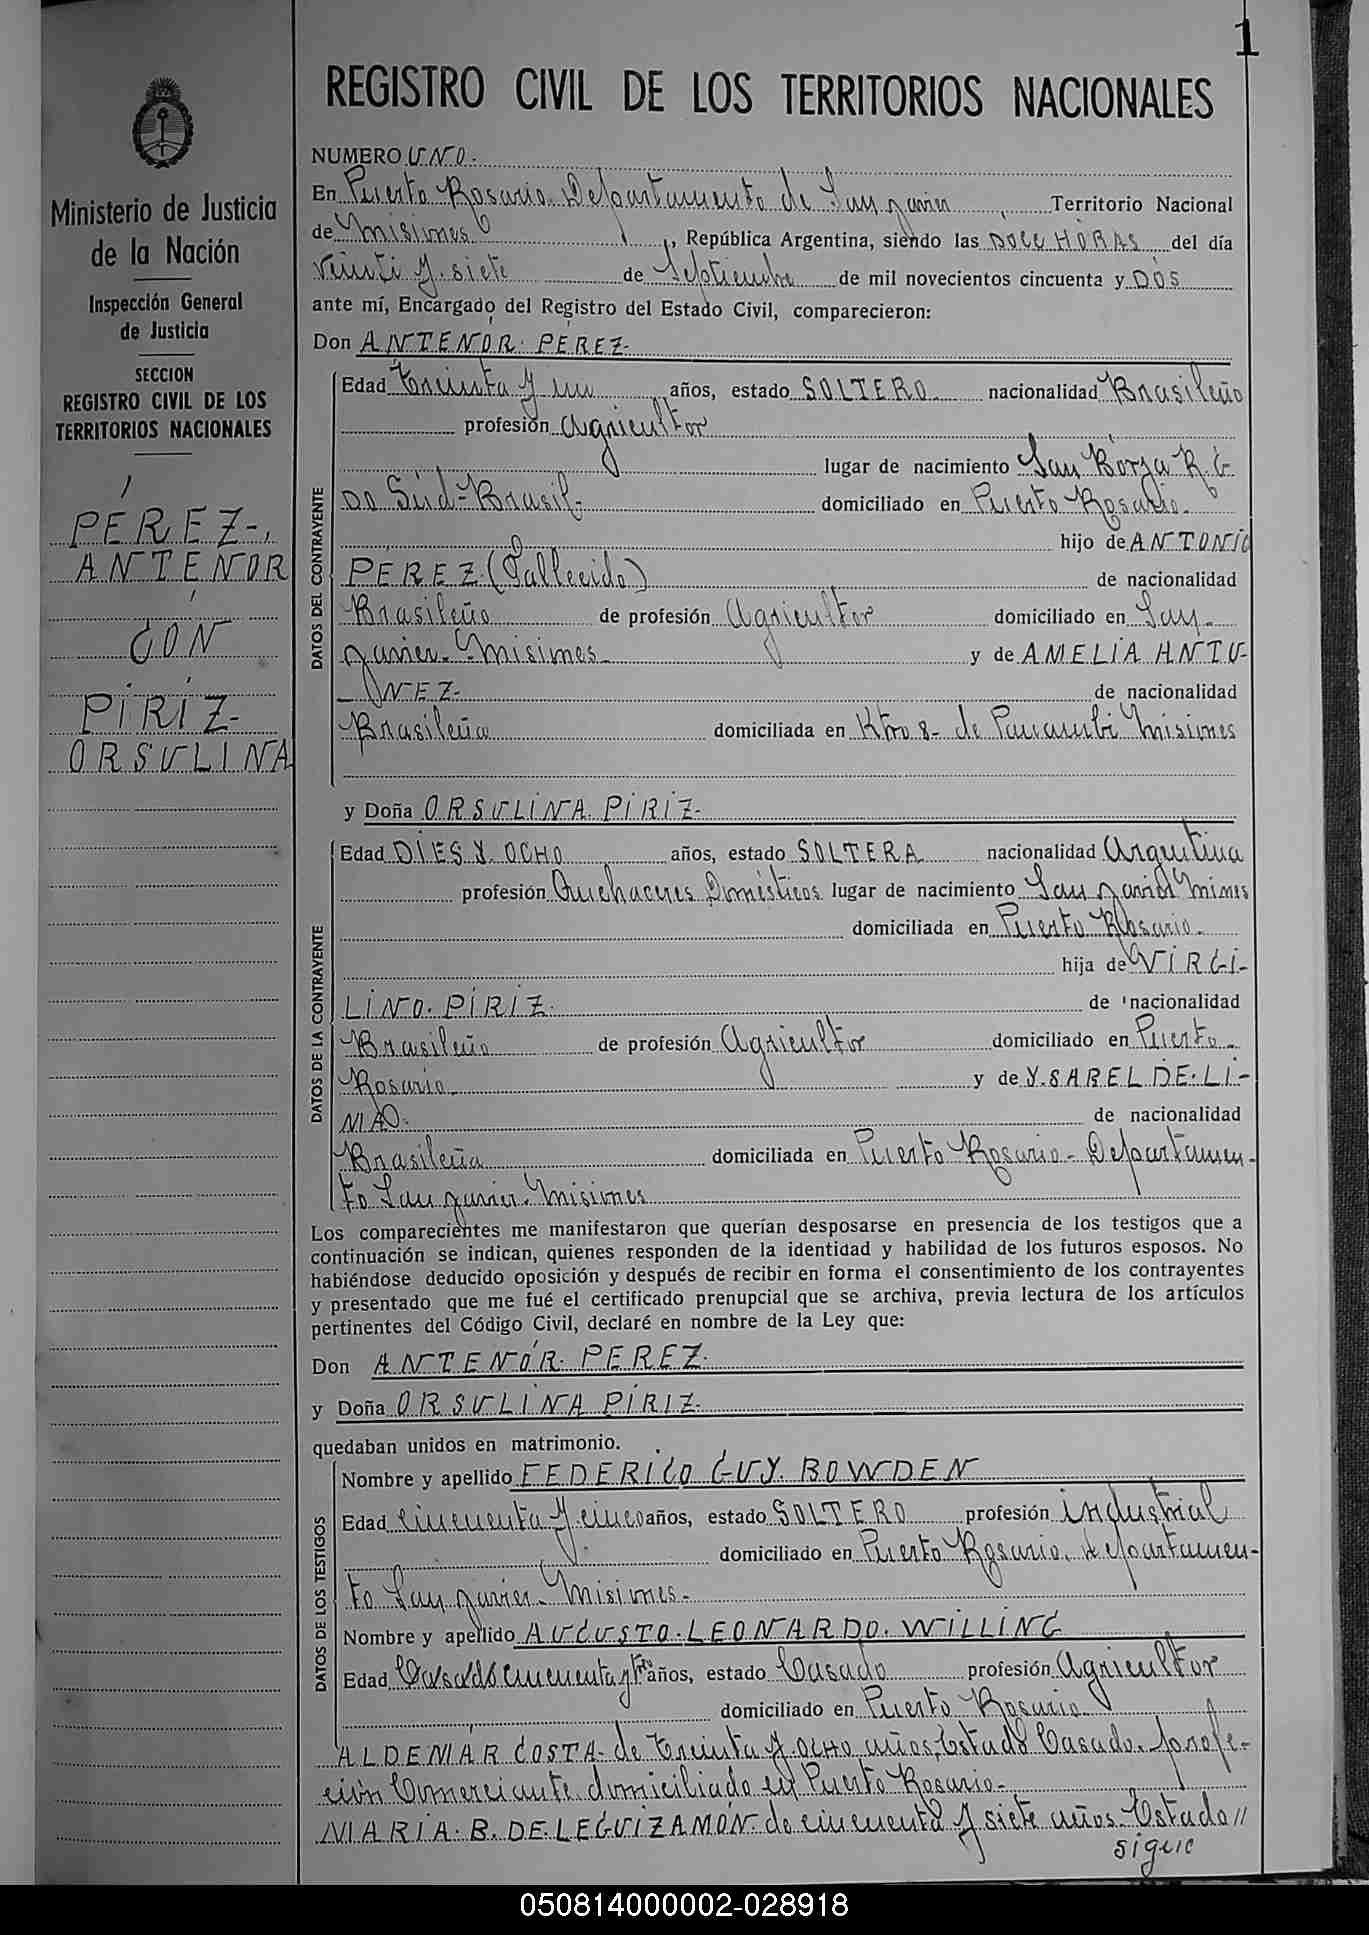 1
REGISTRO CIVIL DE LOS TERRITORIOS NACIONALES
Ministerio de Justicia
de la Nación
Inspección General
de Justicia
SECCION
REGISTRO CIVIL DE LOS
TERRITORIOS NACIONALES
PÉREZ-,
ANTENOR
CON
PIRIZ-
ORSULINA
NUMERO UNO.
En Puerto Rosario Departamento de San Javier, Territorio Nacional
de Misiones, República Argentina, siendo las DOCE HORAS del día
Veinti y siete de Septiembre de mil novecientos cincuenta y DÓS
ante mí, Encargado del Registro del Estado Civil, comparecieron:
Don ANTENÓR PÉREZ-
DATOS DEL CONTRAYENTE
Edad Treinta y un años, estado SOLTERO nacionalidad Brasileño
profesión Agricultor
lugar de nacimiento San Borja R. G.
DO Súd-Brasil- domiciliado en Puerto Rosario-
hijo de ANTONIO
PÉREZ (Fallecido) de nacionalidad
Brasileño de profesión Agricultor domiciliado en San
Javier-Misiones- y de AMELIA ANTU-
NEZ- de nacionalidad
Brasileña domiciliada en Ktro 8- de Panambí Misiones
y Doña ORSULINA PIRIZ-
DATOS DE LA CONTRAYENTE
Edad DIES Y OCHO años, estado SOLTERA nacionalidad Argentina
profesión Quehaceres Domésticos lugar de nacimiento San Javier
domiciliada en Puerto Rosario-
hija de VIRGI-
LINO PIRIZ- de nacionalidad
Brasileño de profesión Agricultor domiciliado en Puerto
Rosario y de YSABEL DE LI-
MA- de nacionalidad
Brasileña domiciliada en Puerto Rosario-Departamen-
to San Javier-Misiones
Los comparecientes me manifestaron que querían desposarse en presencia de los testigos que a
continuación se indican, quienes responden de la identidad y habilidad de los futuros esposos. No
habiéndose deducido oposición y después de recibir en forma el consentimiento de los contrayentes
y presentado que me fué el certificado prenupcial que se archiva, previa lectura de los artículos
pertinentes del Código Civil, declaré en nombre de la Ley que:
Don ANTENÓR PEREZ-
y Doña ORSULINA PIRIZ-
quedaban unidos en matrimonio.
DATOS DE LOS TESTIGOS
Nombre y apellido FEDERICO GUY BOWDEN
Edad cincuenta y cinco años, estado SOLTERO profesión industrial
domiciliado en Puerto Rosario, departamen-
to San Javier-Misiones-
Nombre y apellido AUGUSTO LEONARDO WILLING
Edad cincuenta y tres años, estado Casado profesión Agricultor
domiciliado en Puerto Rosario
ALDEMAR COSTA- de treinta y OCHO años, Estado Casado, profe-
ción Comerciante domiciliado en Puerto Rosario-
MARIA B. DE LEGUIZAMÓN de cincuenta y siete años Estado //
sigue
050814000002-028918